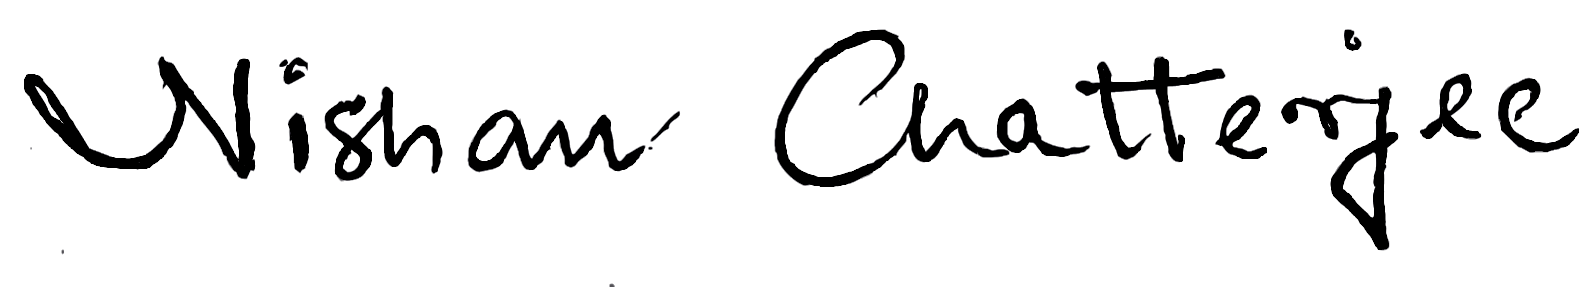 Nishan Chatterjee